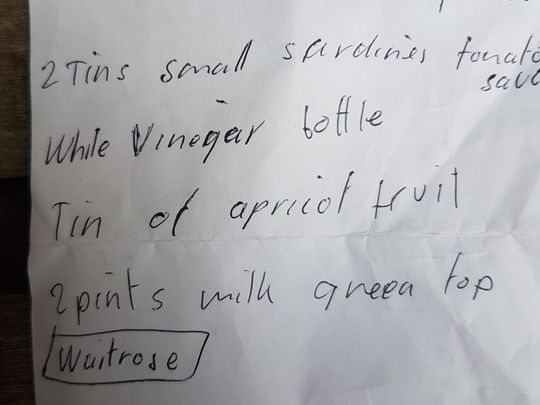 2 Tins small sardines tomato
sauc
White Vinegar bottle
Tin of apricot fruit
2 pints milk green top
Waitrose